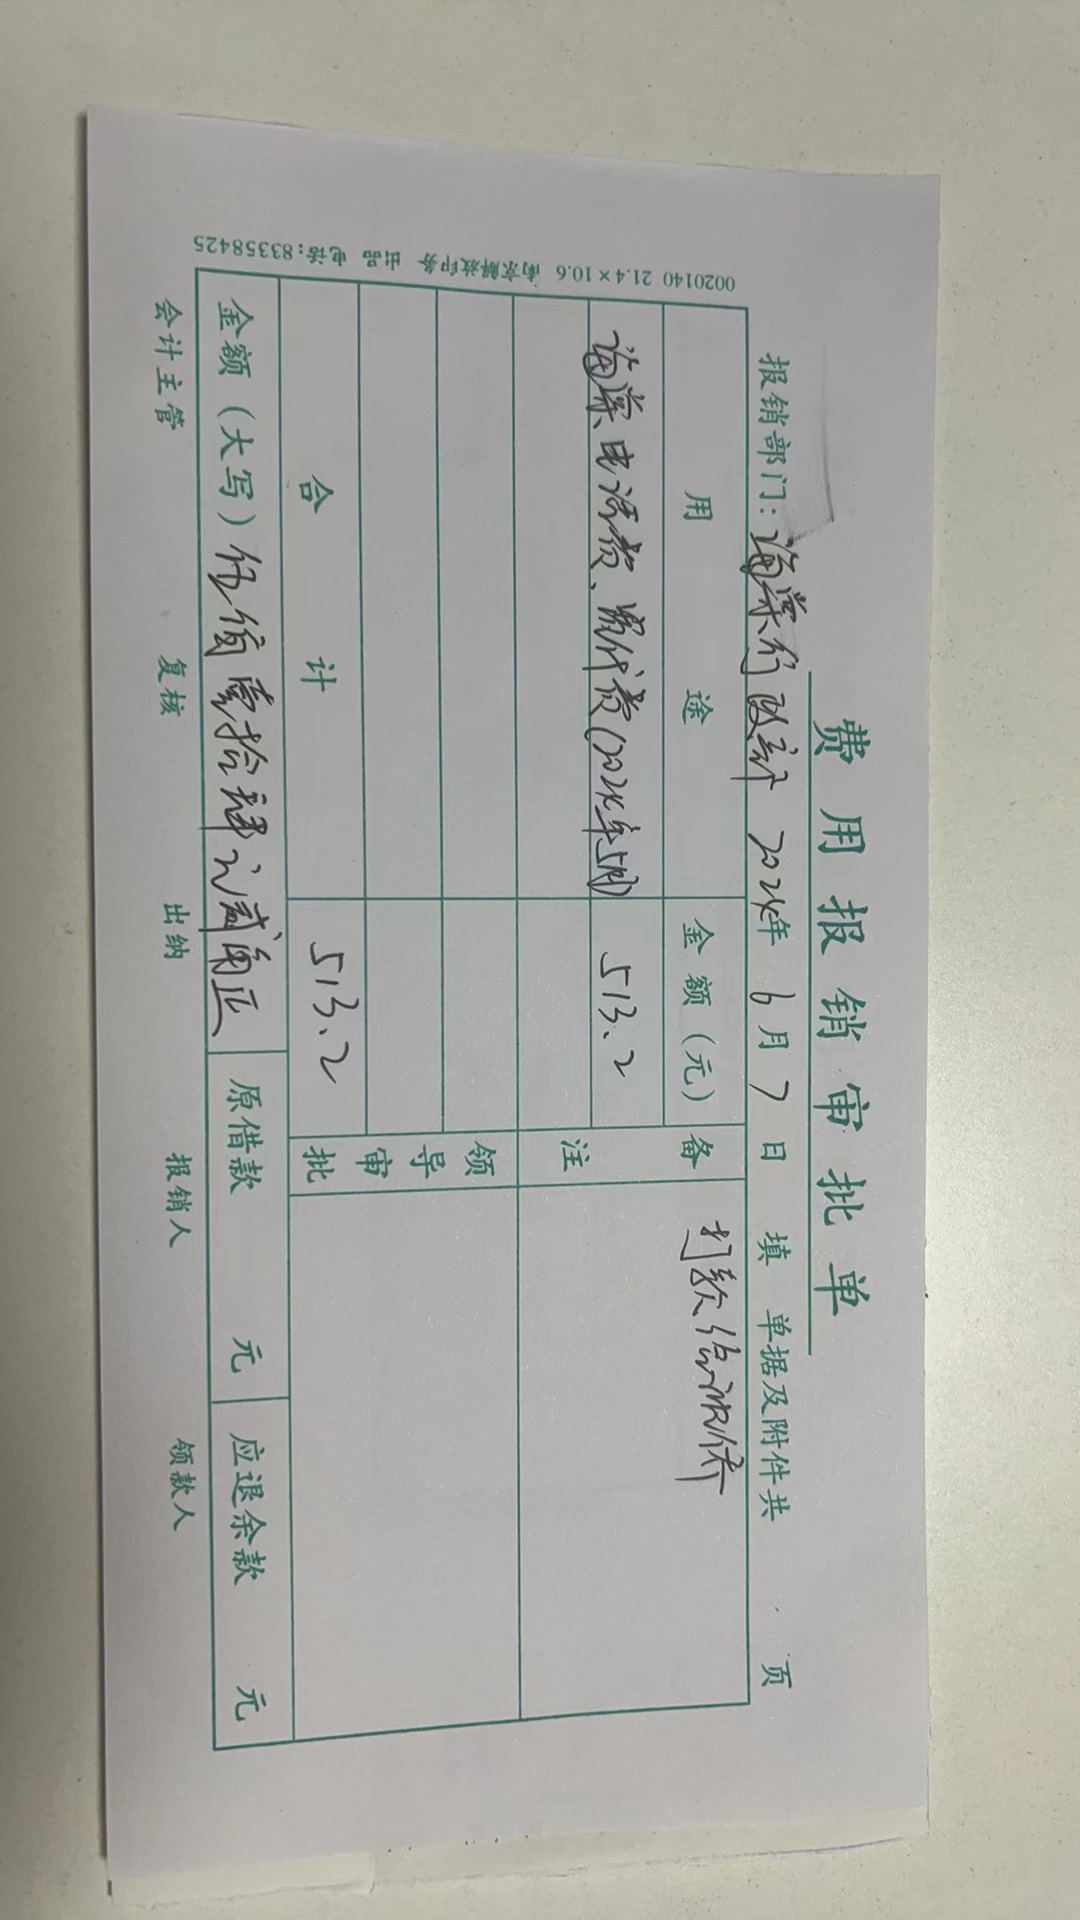 费用报销审批单
报销部门：海棠行政部 2024年 6月7日 填 单据及附件共 页
用途 金额（元） 备注 打款给
海棠电话费、宽代费（2024年5月） 513.2
领导审批
合计 513.2
金额（大写）伍佰壹拾肆元贰角正 原借款 元 应退余款 元
会计主管 复核 出纳 报销人 领款人
0020140 21.4×10.6 南京解放印务 出品 电话：83358425